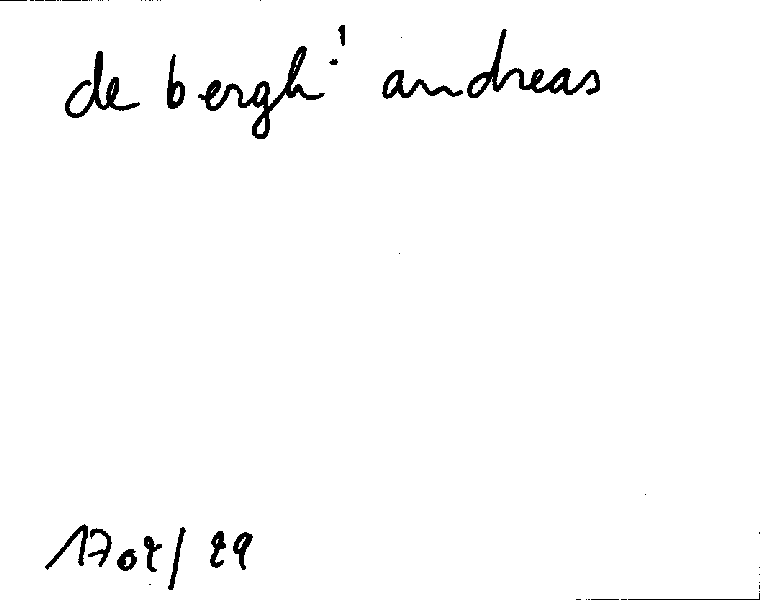 de bergh! andreas
1702/29